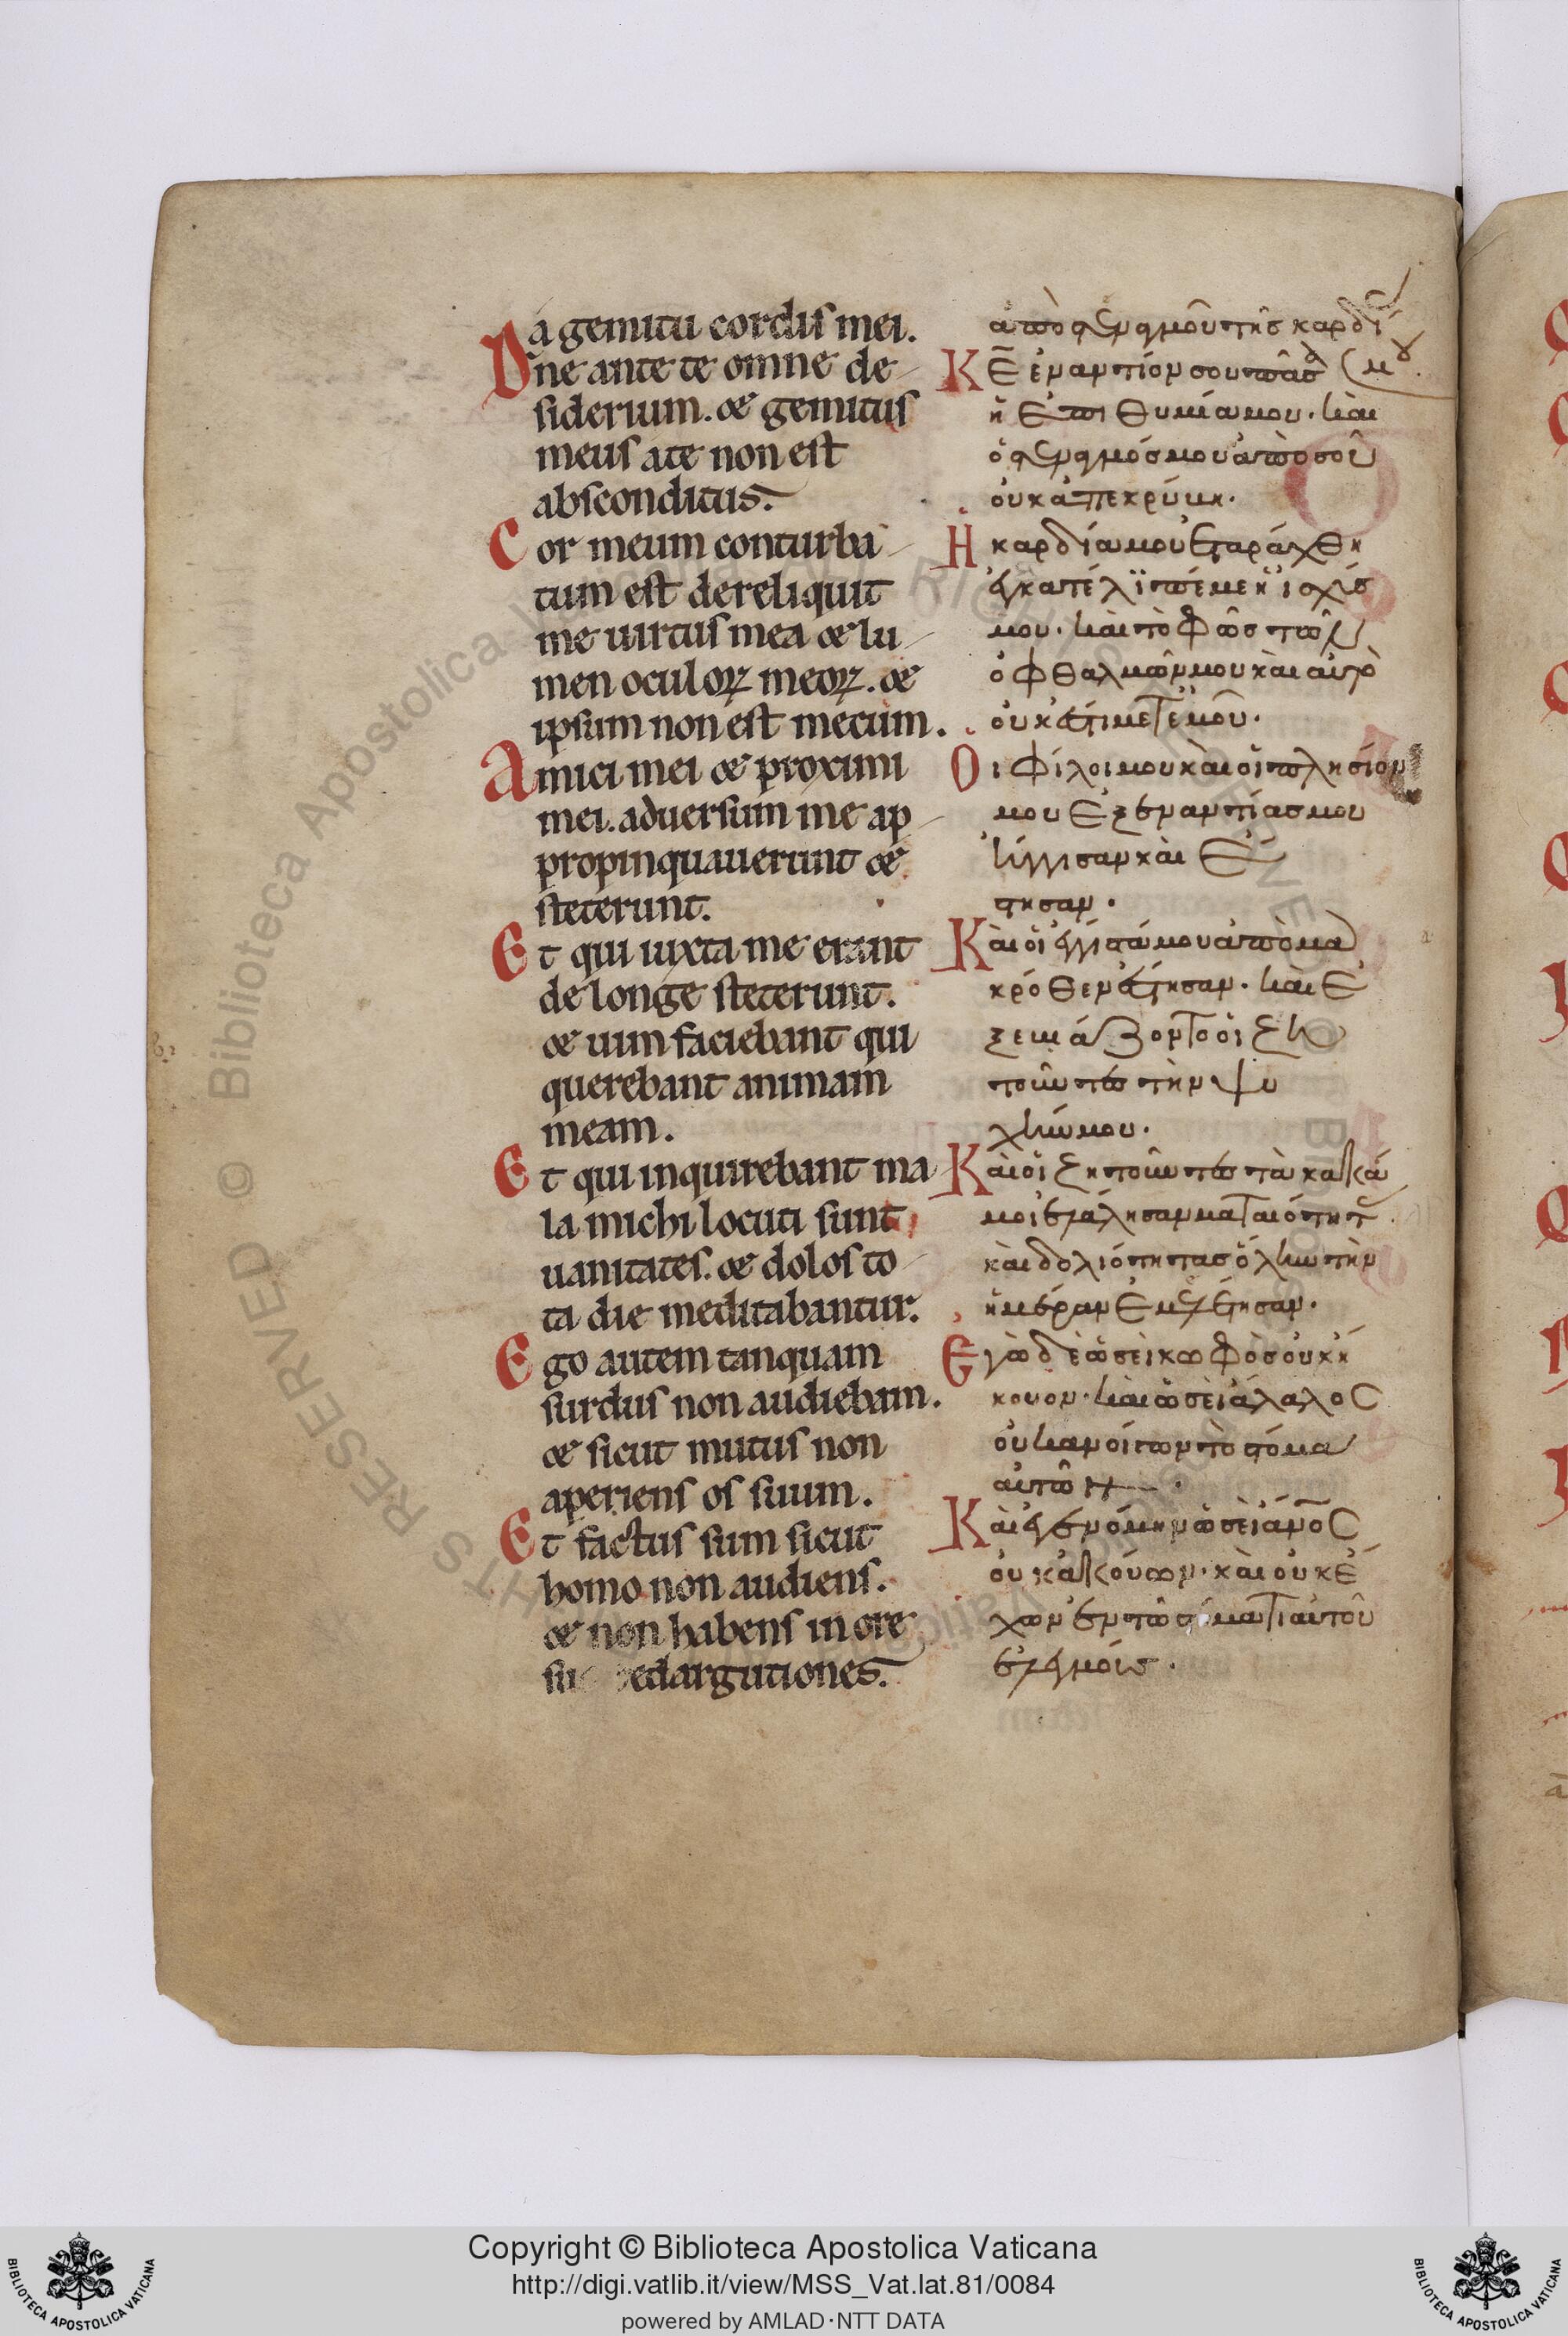 a gemitu cordis mei.
Dne ante te omne de-
siderium. & gemitus
meus a te non est
absconditus.
Cor meum conturba-
tum est dereliquit
me uirtus mea & lu-
men oculoꝝ meoꝝ. &
ipsum non est mecum.
Amici mei & proximi
mei. aduersum me ap-
propinquauerunt &
steterunt.
Et qui iuxta me erant
de longe steterunt.
& uim faciebant qui
querebant animam
meam.
Et qui inquirebant ma-
la michi locuti sunt
uanitates. & dolos to-
ta die meditabantur.
Ego autem tanquam
surdus non audiebam.
& sicut mutus non
aperiens os suum.
Et factus sum sicut
homo non audiens.
& non habens in ore
redargutiones.
ἀπὸ στεναγμοῦ τῆς καρδί
Κε ἐναντίον σου πᾶσα (μου.
ἡ ἐπιθυμία μου. καὶ
ὁ στεναγμός μου ἀπὸ σοῦ
οὐκ ἀπεκρύβη.
Ἡ καρδία μου ἐταράχθη
ἐγκατέλιπέ με ἡ ἰσχύς
μου. καὶ τὸ φῶς τῶν
ὀφθαλμῶν μου καὶ αὐτὸ
οὐκ ἔστι μετ ἐμοῦ.
Οἱ φίλοι μου καὶ οἱ πλησίον
μου ἐξεναντίας μου
ἤγγισαν καὶ ἔ
στησαν.
Καὶ οἱ ἔγγιστά μου ἀπὸ μα
κρόθεν ἔστησαν. καὶ ἐ
ξεβιάζοντο οἱ ζη
τοῦντες τὴν ψυ
χήν μου.
Καὶ οἱ ζητοῦντες τὰ κακά
μοι ἐλάλησαν ματαιότητ
καὶ δολιότητας ὅλην τὴν
ἡμέραν ἐμελέτησαν.
Ἐγὼ δὲ ὡσεὶ κωφὸς οὐκ ἤ
κουον. καὶ ὡσεὶ ἄλαλος
οὐκ ἀνοίγων τὸ στόμα
αὐτοῦ.
Καὶ ἐγενόμην ὡσεὶ ἄνος
οὐκ ἀκούων. καὶ οὐκ ἔ
χων ἐν τῶ στόματι αὐτοῦ
ἐλεγμούς.
BIBLIOTECA APOSTOLICA VATICANA
Copyright © Biblioteca Apostolica Vaticana
http://digi.vatlib.it/view/MSS_Vat.lat.81/0084
powered by AMLAD·NTT DATA
BIBLIOTECA APOSTOLICA VATICANA